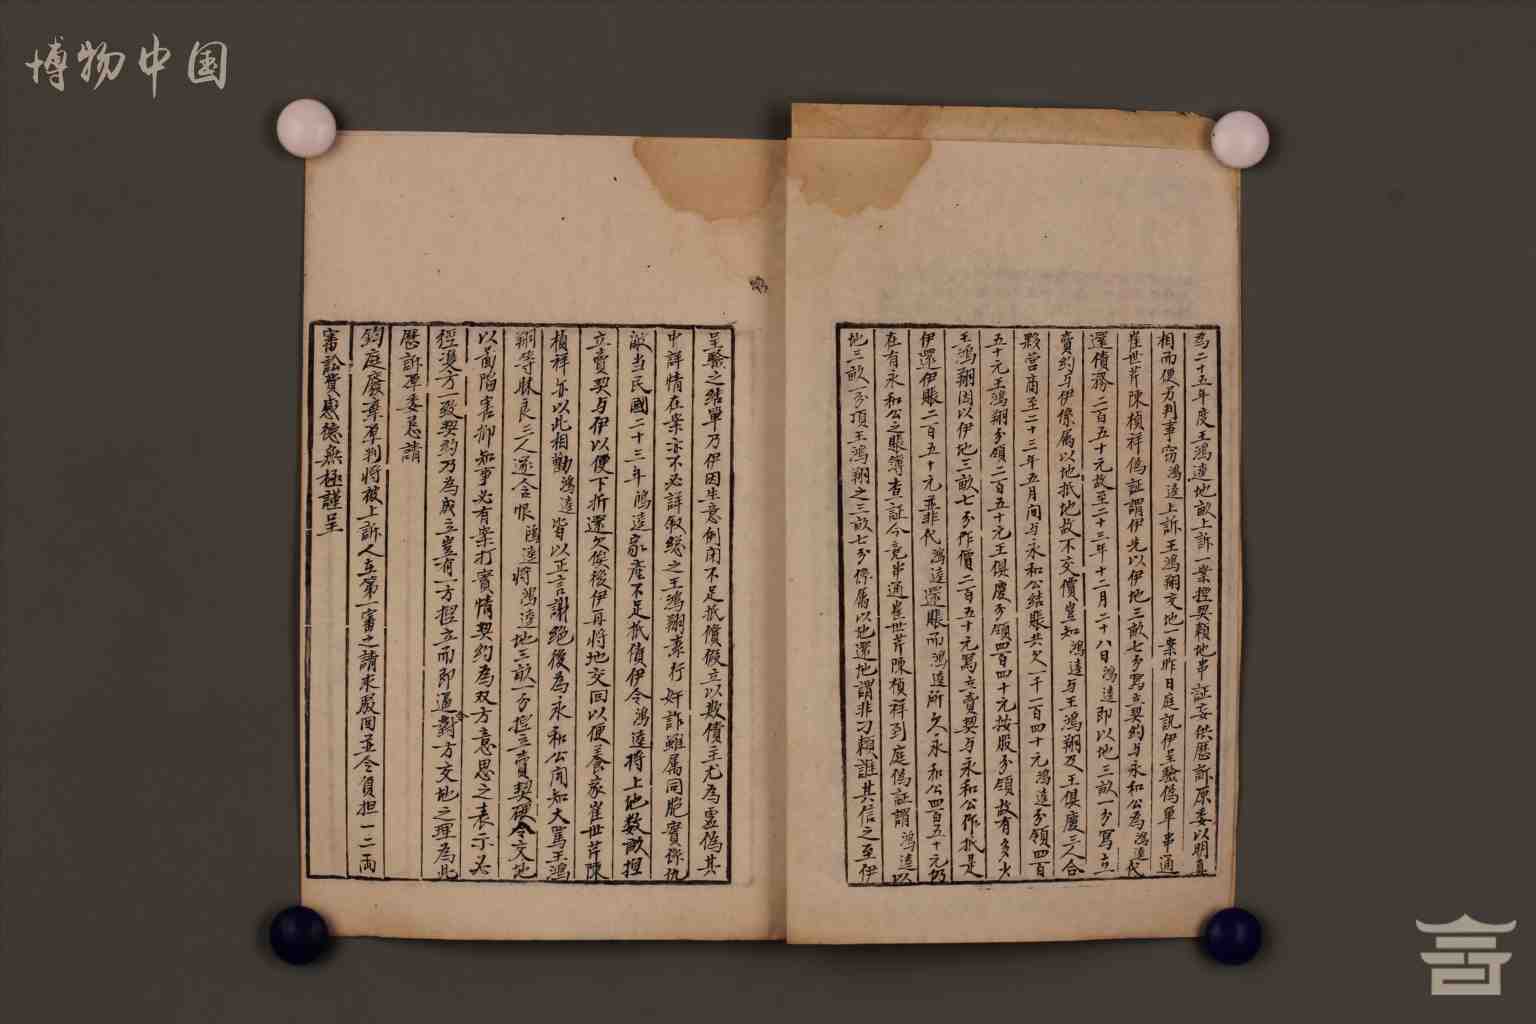 博物中国
為二十五年度王鴻逵地畝上訴一案捏契賴地串証妄供歷訴原委以明真
相而便另判事窃鴻逵上訴王鴻翔交地一案昨日庭訊伊呈驗偽單串通
崔世芹陳楨祥偽証謂伊先以伊地三畝七分寫立契約与永和公為鴻逵代
還債務二百五十元故至二十三年十二月二十八日鴻逵即以地三畝一分寫立
賣約与伊係属以地抵地故不交價豈知鴻逵与王鴻翔及王俱慶三人合
夥营商至二十三年五月间与永和公結賬共欠一千一百四十元鴻逵分領四百
五十元王鴻翔分領二百五十元王俱慶分領四百四十元按股分領故有多少
王鴻翔因以伊地三畝七分作價二百五十元寫立賣契与永和公作抵是
伊還伊賬二百五十元並非代鴻逵還賬而鴻逵所欠永和公四百五十元仍
在有永和公之賬簿查証今竟串通崔世芹陳楨祥到庭偽証謂鴻逵以
地三畝一分頂王鴻翔之三畝七分係属以地還地謂非刁賴誰其信之至伊
呈驗之結單乃伊因生意倒闭不足抵償假立以数債主尤為虚偽其
中詳情在案亦不必詳叙総之王鴻翔素行奸詐雖属同胞實係仇
敵当民國二十三年鴻逵家產不足抵債伊令鴻逵将上地数畝捏
立賣契与伊以便下折還欠俟後伊再将地交回以便養家崔世芹陳
楨祥亦以此相勸鴻逵皆以正言謝绝後為永和公闻知大罵王鴻
翔等昧良三人遂含恨鴻逵将鴻逵地三畝一分捏立賣契硬令交地
以啚陷害抑知事必有案打實情契約為双方意思之表示必
經双方一致契約乃為成立豈有一方捏立而即逼令對方交地之理為此
歷訴原委恳請
鈞庭廢棄原判将被上訴人在第一審之請求駁回並令負担一二两
審訟費感德無極謹呈